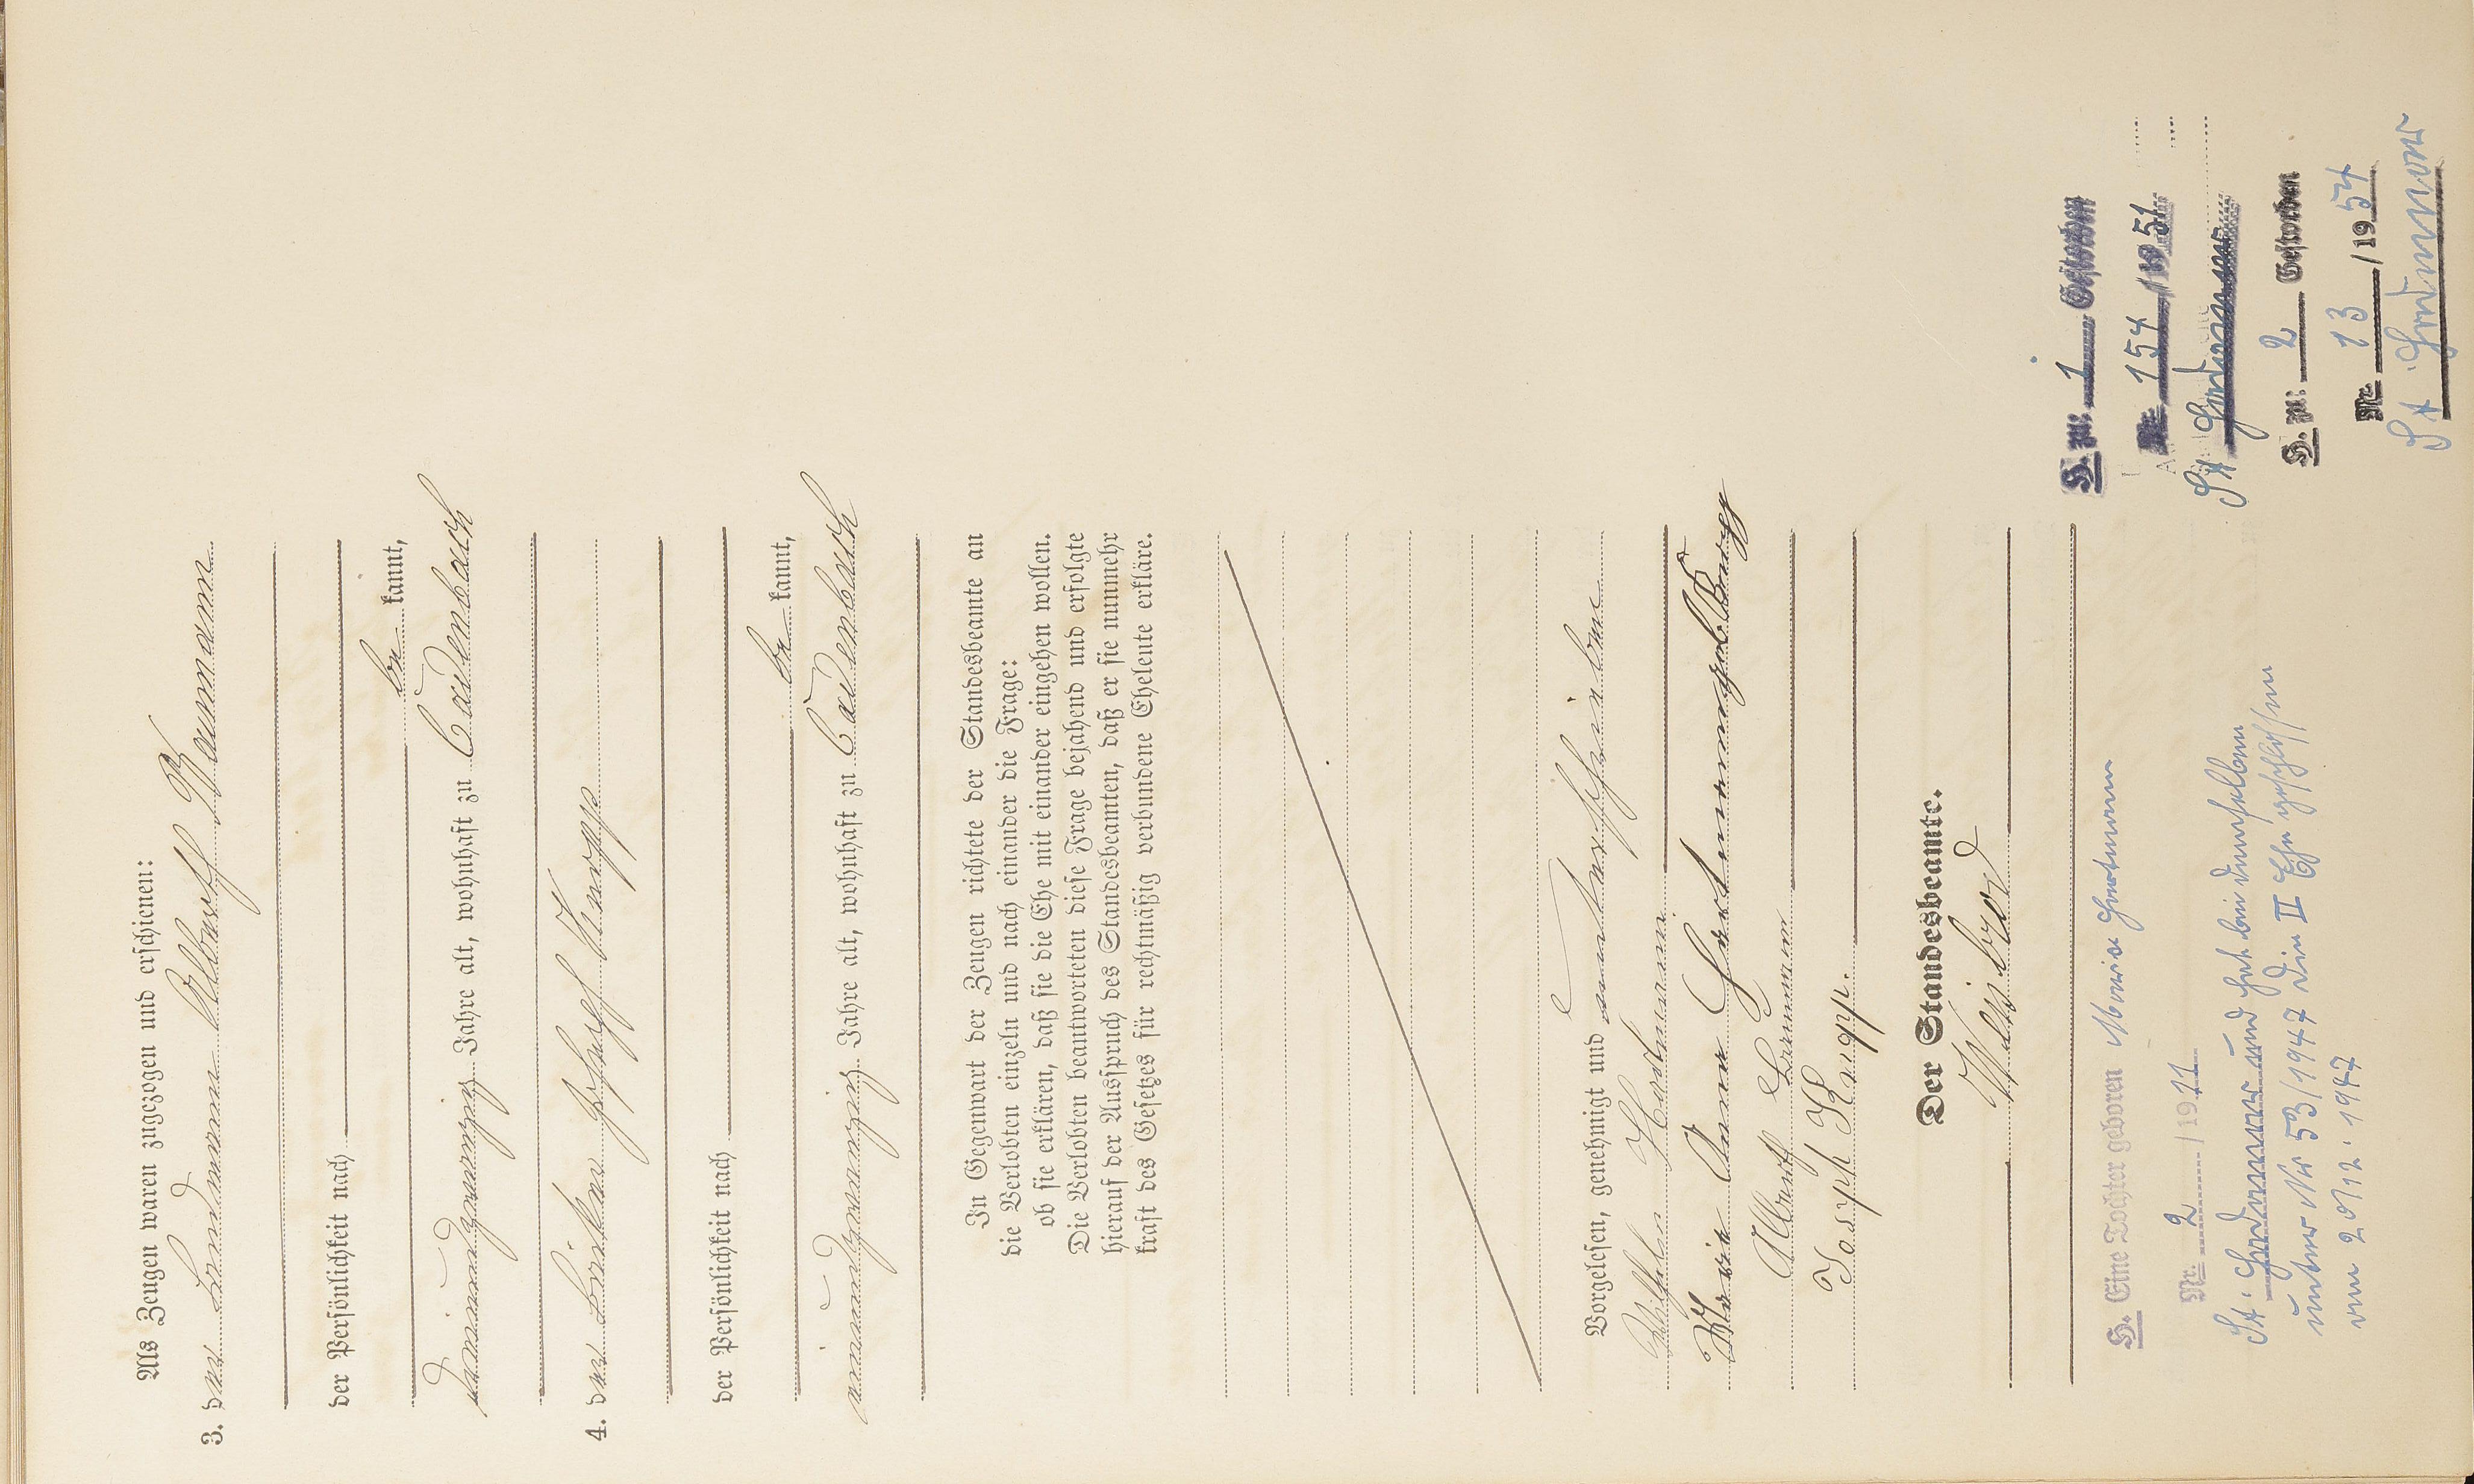 Als Zeugen waren zugezogen und erschienen:
3. der Landmann Albert Baumann
der Persönlichkeit nach
be kannt,
dreiundzwanzig Jahre alt, wohnhaft zu Cadenbach
4. der Bäcker Joseph Knopp
der Persönlichkeit nach
be kannt,
einundzwanzig Jahre alt, wohnhaft zu Cadenbach
In Gegenwart der Zeugen richtete der Standesbeamte an
die Verlobten einzeln und nach einander die Frage:
ob sie erklären, daß sie die Ehe mit einander eingehen wollen.
Die Verlobten beantworteten diese Frage bejahend und erfolgte
hierauf der Ausspruch des Standesbeamten, daß er sie nunmehr
kraft des Gesetzes für rechtmäßig verbundene Eheleute erkläre.
Vorgelesen, genehmigt und unterschrieben
Wilhelm Hartmann
Maria Anna Hartmann geb.
Albert
Joseph Knopp.
Der Standesbeamte.
H. Eine Tochter geboren Maria Hartmann
Nr. 2 / 1911
St. und hat bei demselben
unter Nr 53/1947 die II Ehe geschlossen
am 20.12.1947
H. zu 1 Gestorben
Nr. 154 / 1951
St
H. zu: 2 Gestorben
Nr. 13 / 1954
St.